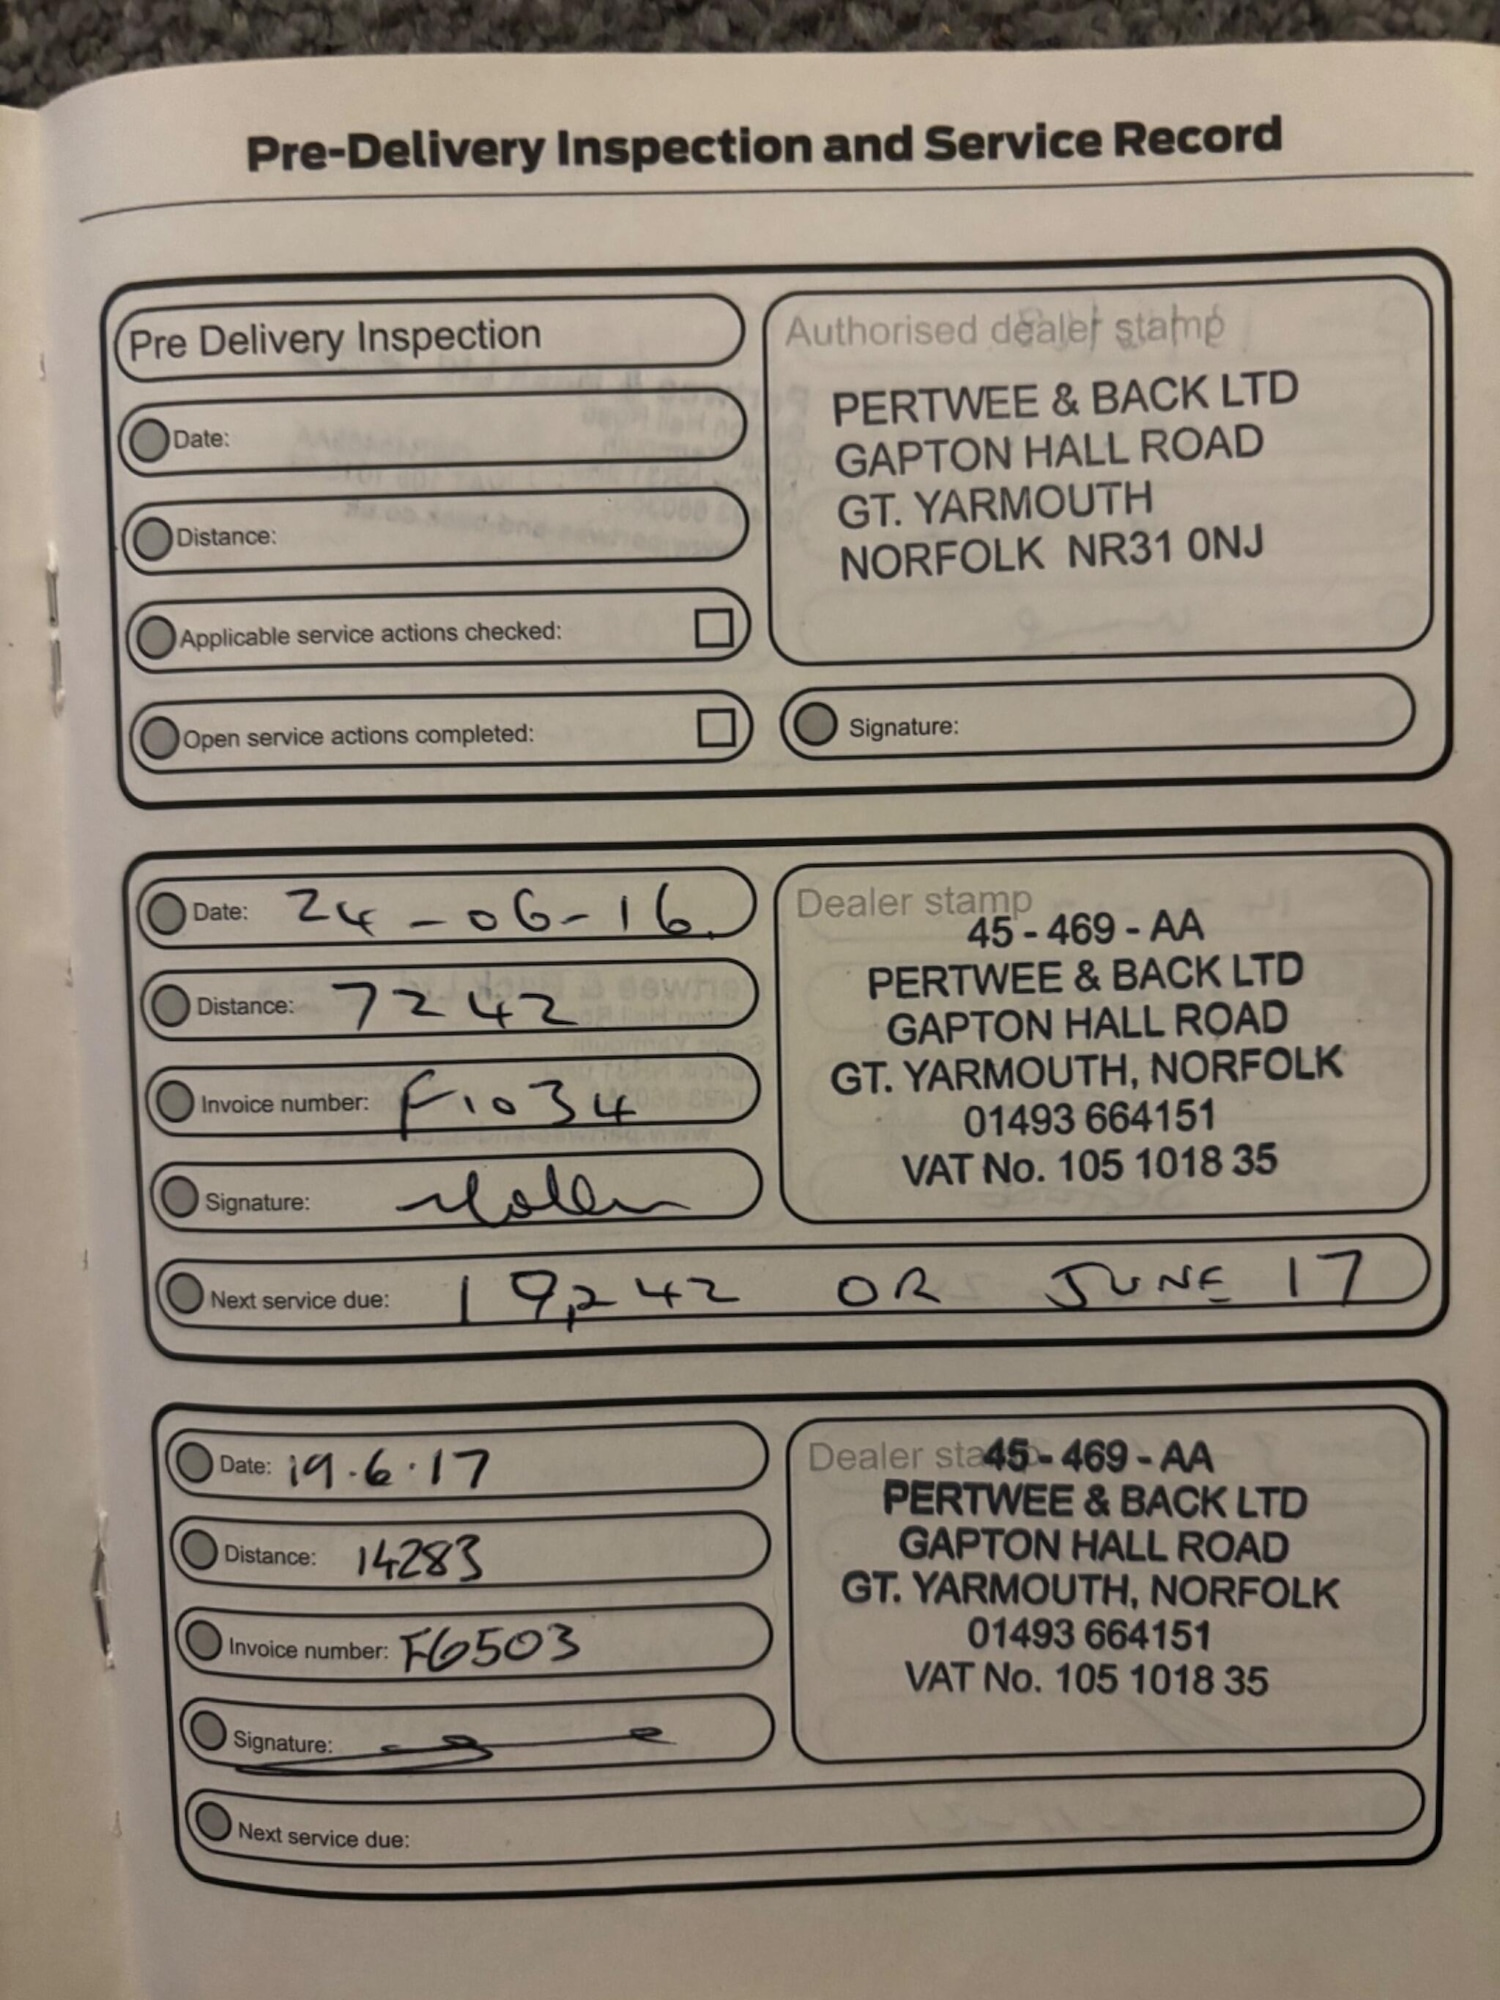 Pre-Delivery Inspection and Service Record
Pre Delivery Inspection
Date:
Distance:
Applicable service actions checked:
Open service actions completed:
Authorised dealer stamp
PERTWEE & BACK LTD
GAPTON HALL ROAD
GT. YARMOUTH
NORFOLK NR31 0NJ
Signature:
Date: 24-06-16.
Distance: 7242
Invoice number: F1034
Signature:
Dealer stamp
45 - 469 - AA
PERTWEE & BACK LTD
GAPTON HALL ROAD
GT. YARMOUTH, NORFOLK
01493 664151
VAT No. 105 1018 35
Next service due: 19,242 OR JUNE 17
Date: 19.6.17
Distance: 14283
Invoice number: F6503
Signature:
Dealer stamp
45 - 469 - AA
PERTWEE & BACK LTD
GAPTON HALL ROAD
GT. YARMOUTH, NORFOLK
01493 664151
VAT No. 105 1018 35
Next service due: